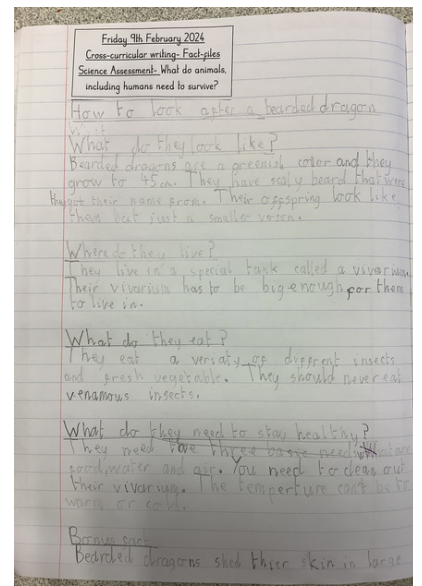 Friday 9th February 2024
Cross-curricular writing- Fact-files
Science Assessment- What do animals,
including humans need to survive?
How to look after a bearded dragon
What do they look like?
Bearded dragons are a greenish color and they
grow to 45cm. They have scaly beard that were
they got their name from. Their offspring look like
them but just a smaller verson.
Where do they live?
They live in a special tank called a vivarium
Their vivarium has to be big enough for them
to live in.
What do they eat?
They eat a veriaty of different insects
and fresh vegetable. They should never eat
venamous insects.
What do they need to stay healthy?
They need three basic need are
food, water and air. You need to clean out
their vivarium. The temperture can't be to
warm or cold.
Bonus fact
Bearded dragons shed thier skin in large